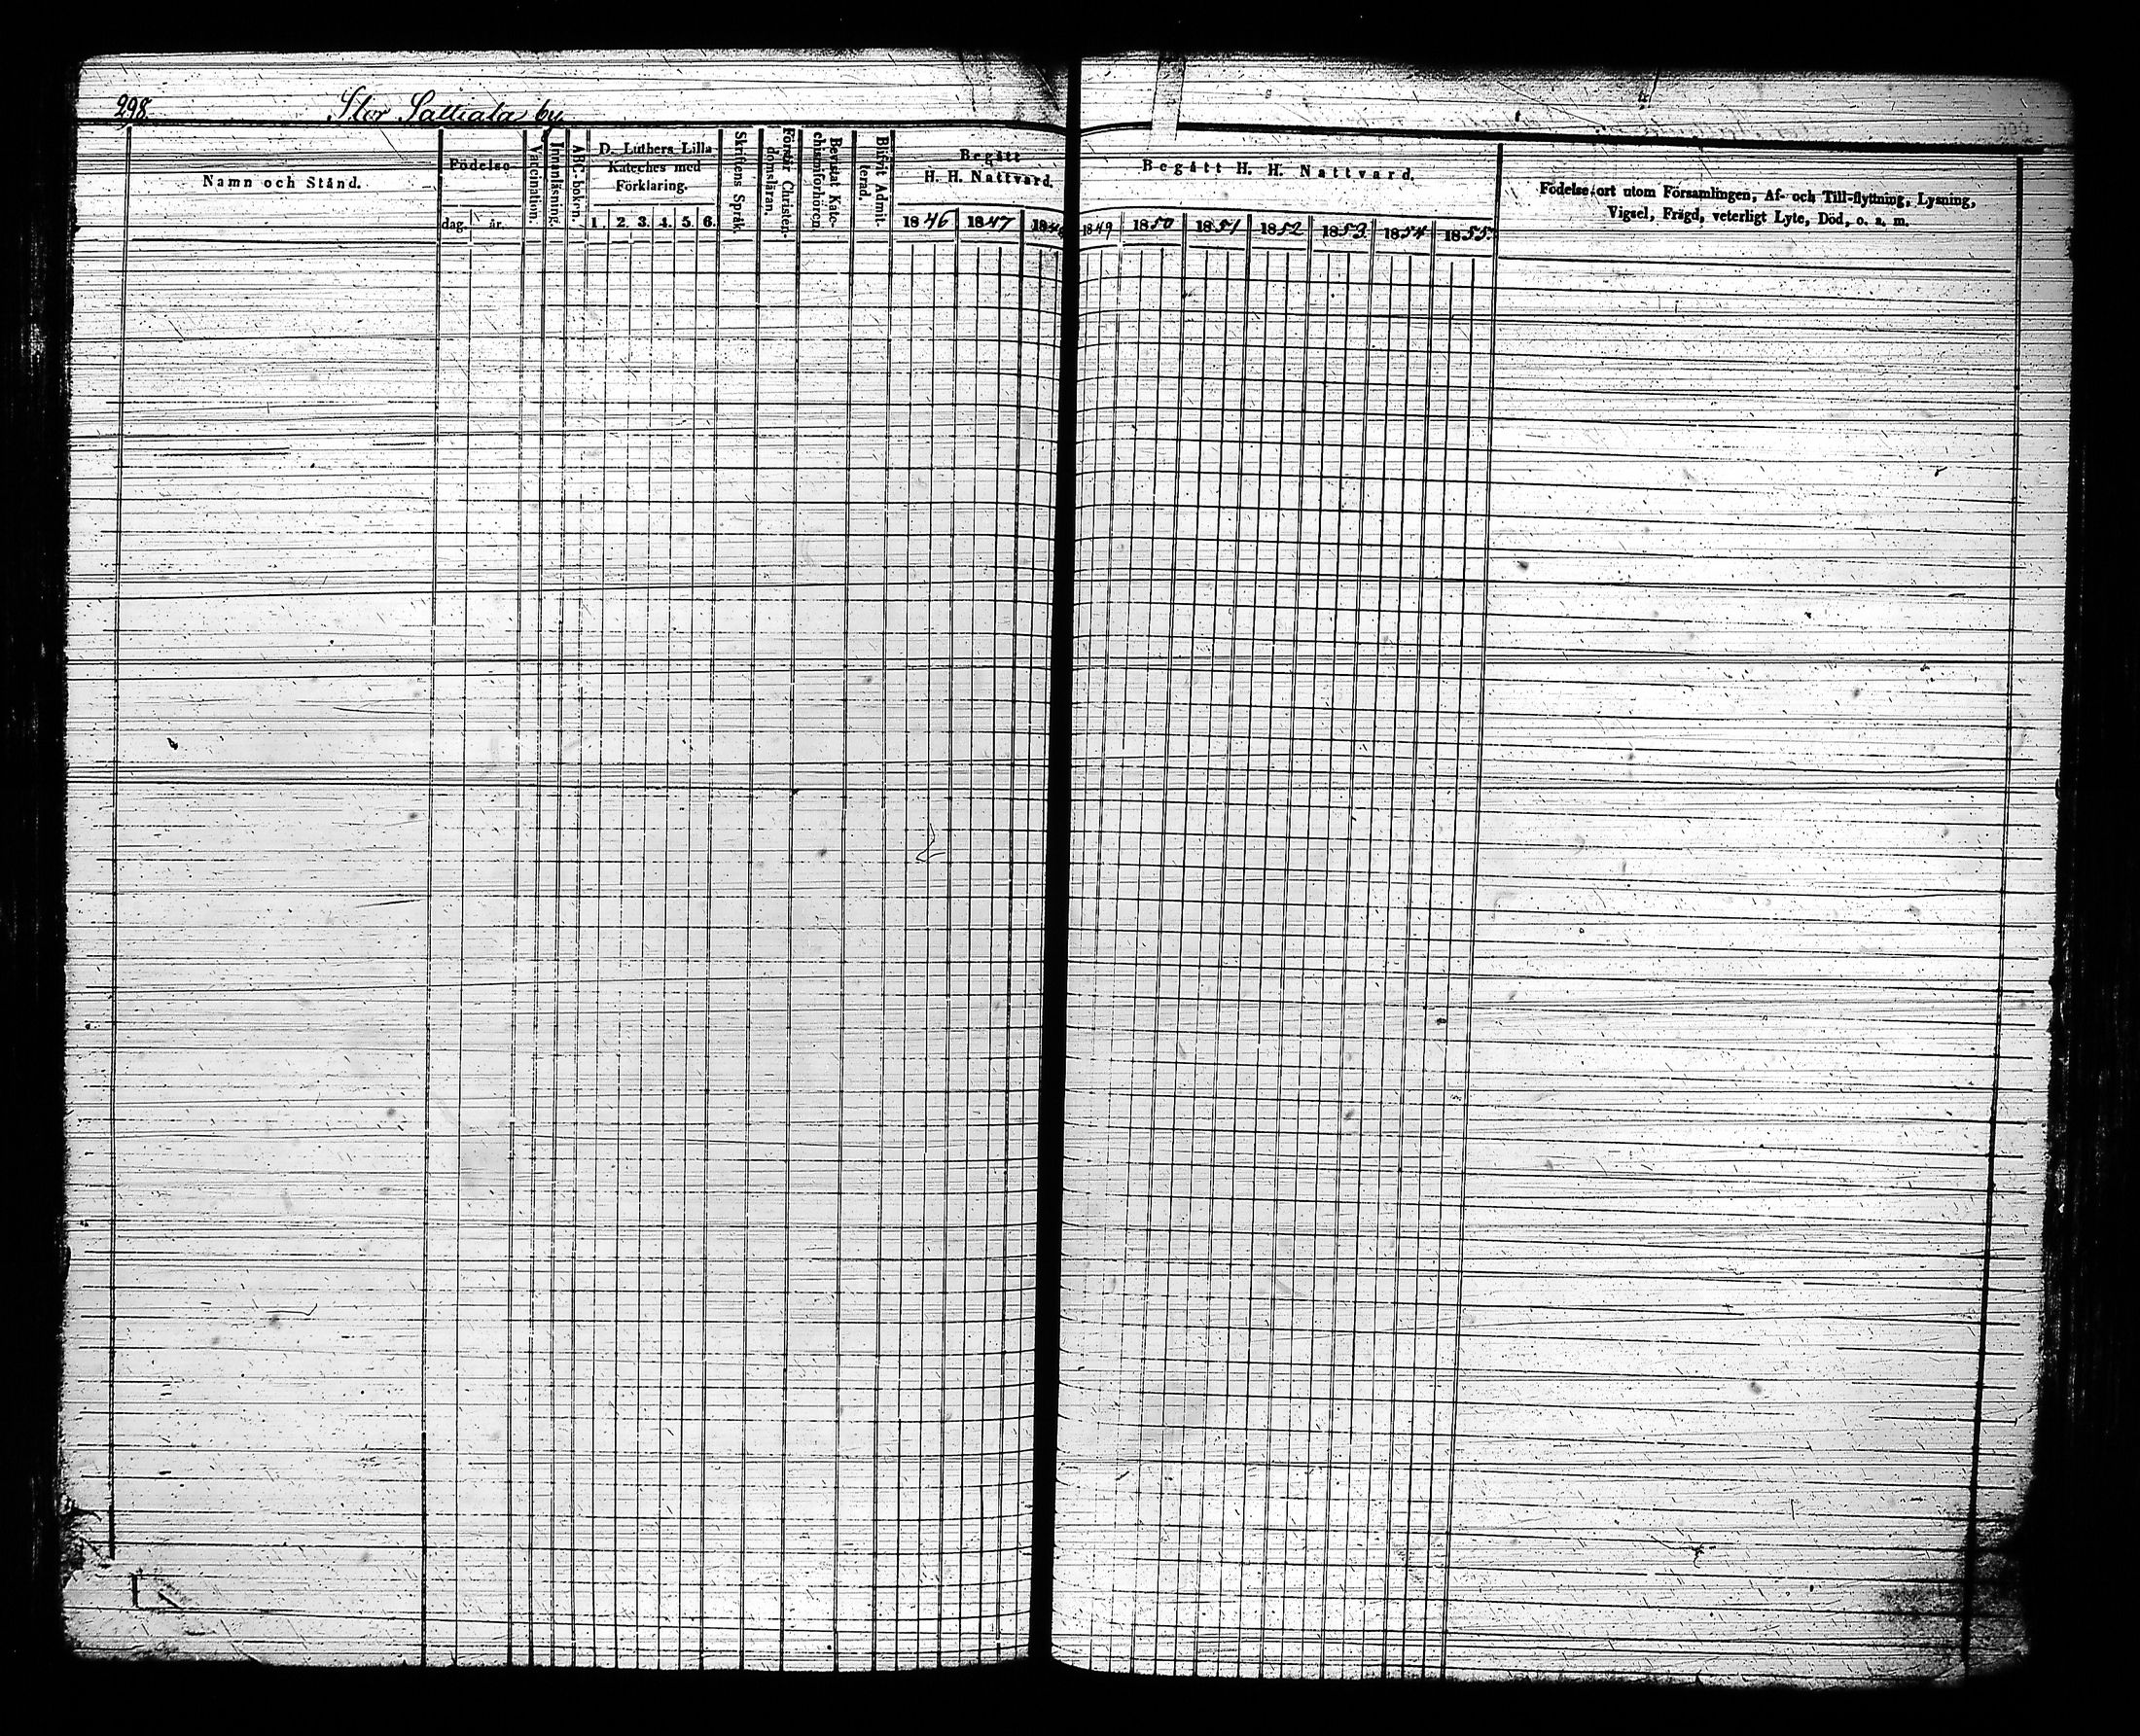 298.
Stor Sattiala by
Namn och Stånd.
Födelse
dag. år.
Vaccination.
Innanläsning.
ABC-boken.
D. Luthers Lilla
Kateches med
Förklaring.
1. 2. 3. 4. 5. 6.
Skriftens Språk.
Förstår Christen-
domsläran.
Bevistat Kate-
chismiförhören
Blifvit Admit-
terad.
Begått
H. H. Nattvard.
1846 1847 1848
Begått H. H. Nattvard.
1849 1850 1851 1852 1853. 1854 1855.
Födelse-ort utom Församlingen, Af- och Till-flyttning, Lysning,
Vigsel, Frägd, veterligt Lyte, Död, o. a. m.